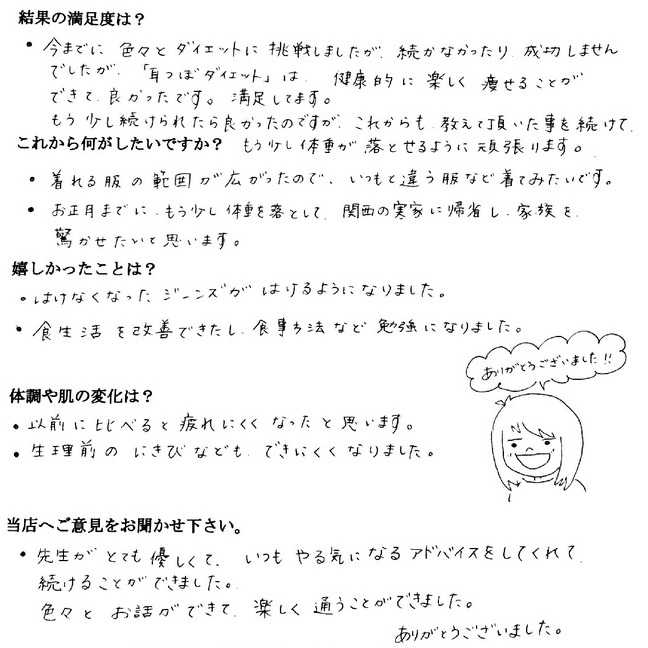 結果の満足度は？
・今までに 色々とダイエットに 挑戦しましたが、続かなかったり、成功しません
でしたが、「耳つぼダイエット」は、健康的に 楽しく 痩せることが
できて、良かったです。満足してます。
もう少し続けられたら良かったのですが、これからも、教えて頂いた事を続けて、
これから何がしたいですか？ もう少し体重が 落とせるように 頑張ります。
・着れる服の範囲が広がったので、いつもと違う服など着てみたいです。
・お正月までに、もう少し体重を落として、関西の実家に帰省し、家族を、
驚かせたいと思います。
嬉しかったことは？
・はけなくなったジーンズがはけるようになりました。
・食生活を改善できたし、食事方法など勉強になりました。
ありがとうございました!!
体調や肌の変化は？
・以前に比べると疲れにくくなったと思います。
・生理前のにきびなども、できにくくなりました。
当店へご意見をお聞かせ下さい。
・先生がとても優しくて、いつもやる気になるアドバイスをしてくれて、
続けることができました。
色々とお話ができて、楽しく通うことができました。
ありがとうございました。